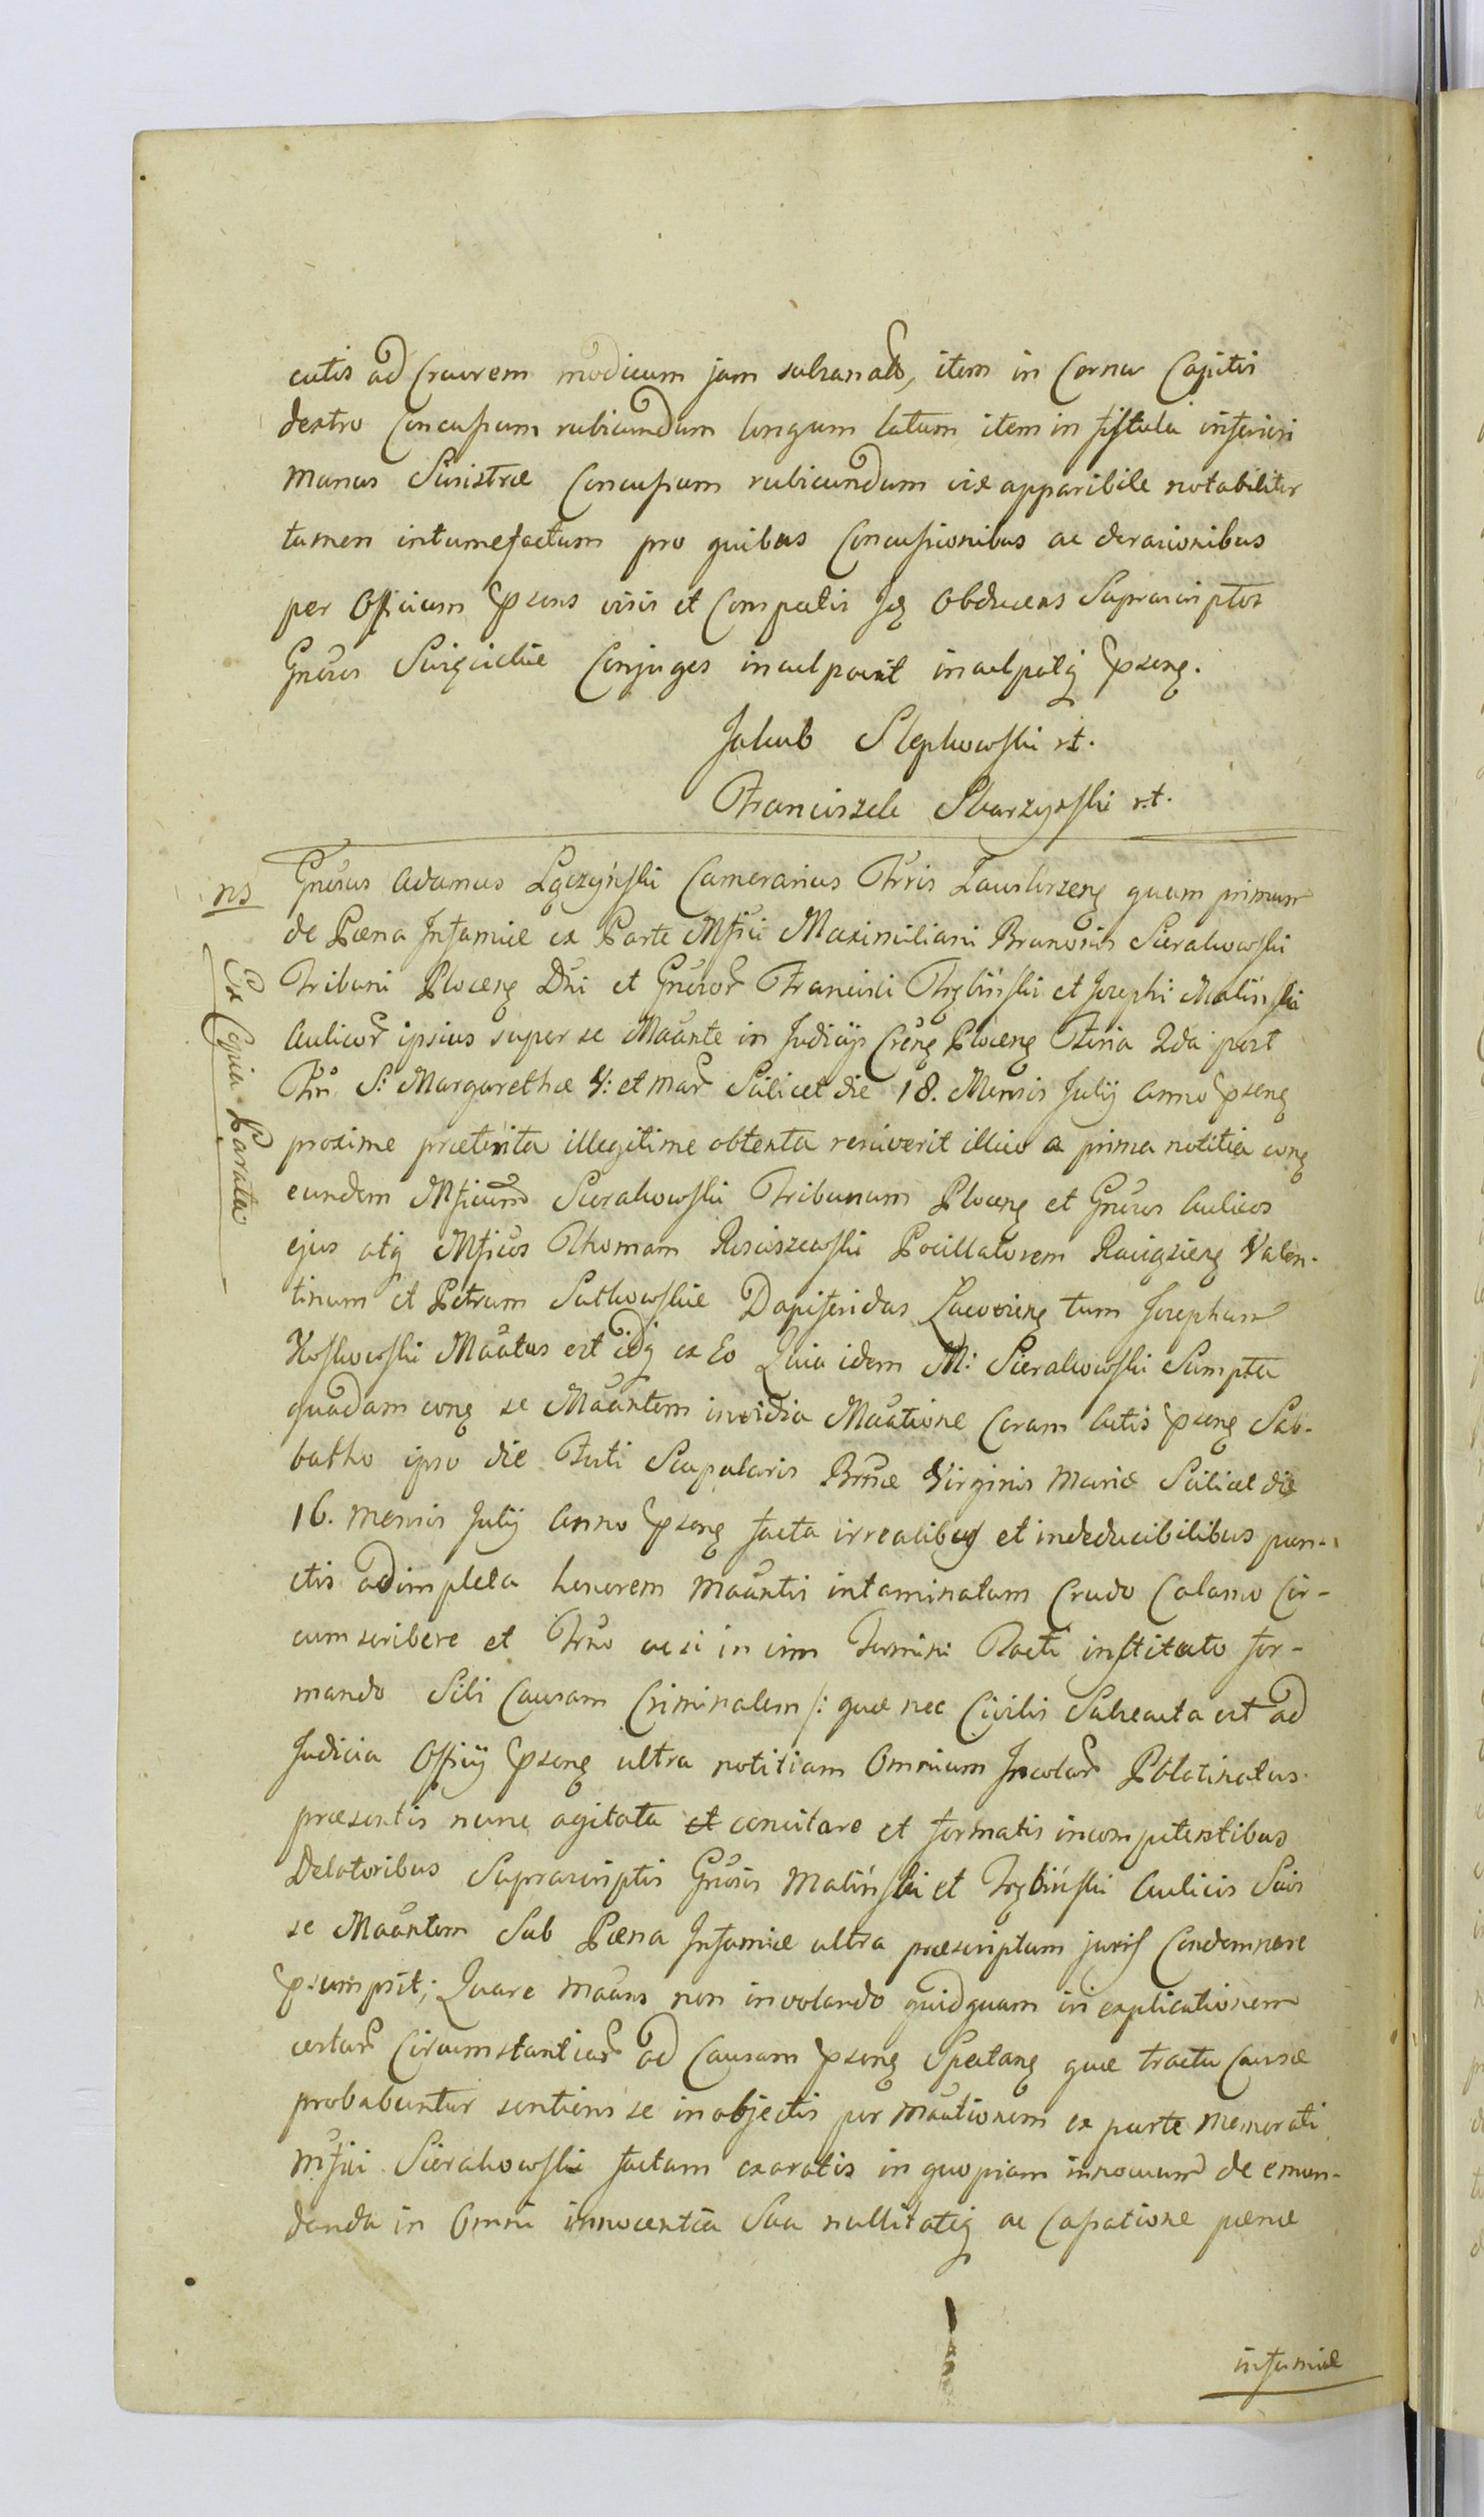 cutis ad Cruorem modicum jam subsanato, item in Cornu Capitis
dextro Concussum rubicundum longum latum item in fistula inferiori
manus Sinistræ Concussum rubicundum vix apparibile notabiliter
tamen intumefactum pro quibus Concussionibus ac derasionibus
per Officium pṡens visis et Conspectis Idq Obducens Suprascriptos
Gnosos Swięcickie Conjuges inculpavit inculpatq pṡenq.
Jakub Slepkowski rt.
Franciszek Skarzynski r.t.
ns
Gnosus Adamus Łączyński Camerarius Trris Zawkrzenq quam primum
de Pæna Infamiæ ex Parte Mfici Maximiliani Brunonis Sierakowski
Tribuni Plocenq Dni et Gnosor Francisci Trębiński et Josephi Maliński
Aulicor ipsius super se Maante in Judicijs Crenq Plocenq Feria 2da post
Ftm S: Margarethæ V: et mar Scilicet die 18. Mensis Julij Anno pṡenq
proxime præterita illegitime obtenta resciverit illico a prima notitia conq
eundem Mficum Sierakowski Tribunum Plocenq et Gnosos Aulicos
ejus atq Mficos Thomam Rosciszewski Pocillatorem Raciązienq Valen-
tinum et Petrum Sutkowskie Dapiferidas tum Josephum
Koskowski Maatus est idq ex Eo Quia idem M: Sierakowski Sumpta
quadam conq se Maantem invidia Maatione Coram Actis pṡenq Sab-
batho ipso die Festi Scapularis Bmæ Virginis Mariæ Scilicet die
16. mensis Julij Anno pṡenq facta irrealibus et indeducibilibus pun-
ctis adimpleta honorem maantis intaminatam Crudo Calamo Cir-
cumscribere et Trno ac si in vim Termini Tacti instituto for-
mando Sibi Causam Criminalem /: quæ nec Civilis Subsecuta est ad
Judicia Officij pṡenq ultra notitiam Omnium Incolar Pblatinatus
præsentis nunc agitata et concitare et formatis incomputentibus
Delatoribus Suprascriptis Gnosis Maliński et Trębiński Aulicis Suis
se Maantem Sub Pæna Infamiæ ultra præscriptum juris Condemnare
pṡumpsit; Quare Maans non involando quidquam in explicationem
certar Circumstantiar ad Causam pṡenq Spectanq quæ tractu Causæ
probabuntur sentiens se in objectis per maationem ex parte memorati
mfici Sierakowski factam exaratis in quopiam innocuum de emun-
danda in Omni innocentia Sua nullitatiq ac Cassatione pænæ
infamiæ
Ex Copia Parata